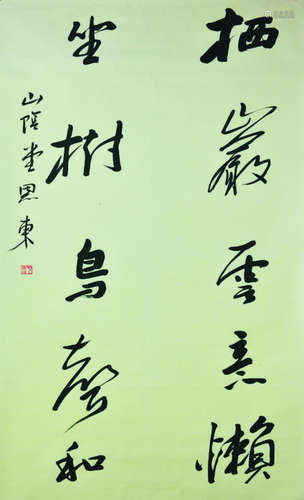 栖巖雲意懶
坐樹鳥聲和
山陰堂恩東